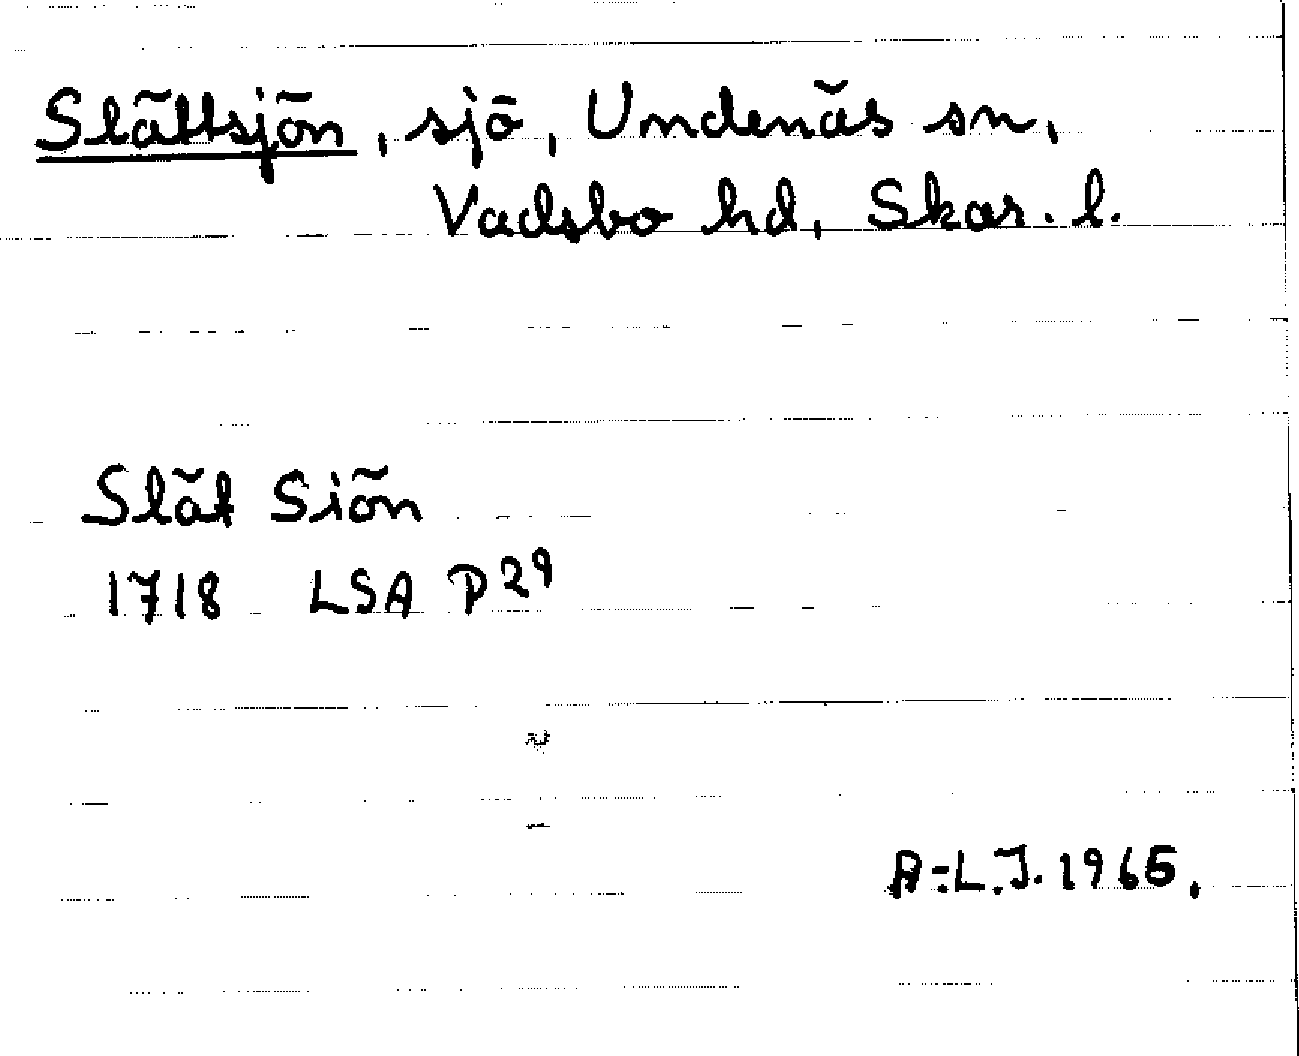 Slättsjön, sjö, Undenäs sn,
Vadsbo hd, Skar. l.
Slät Siön
1718 LSA P29
A-L.J. 1965.